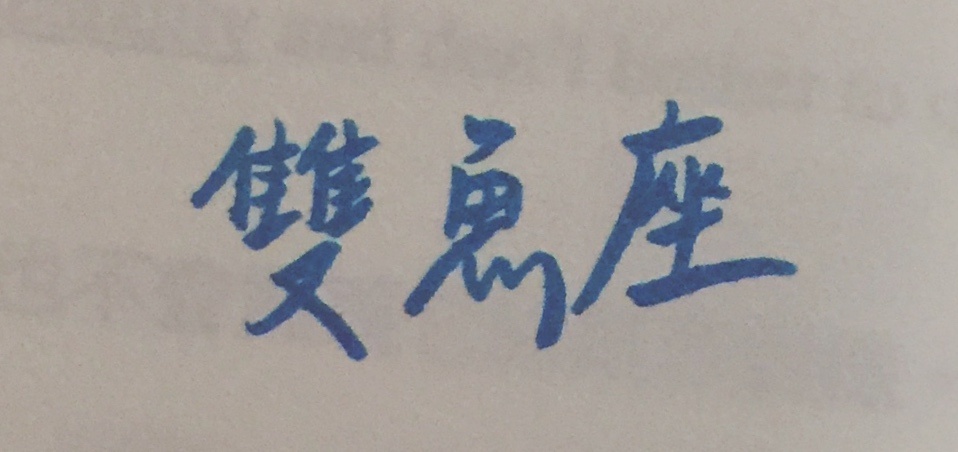 雙魚座